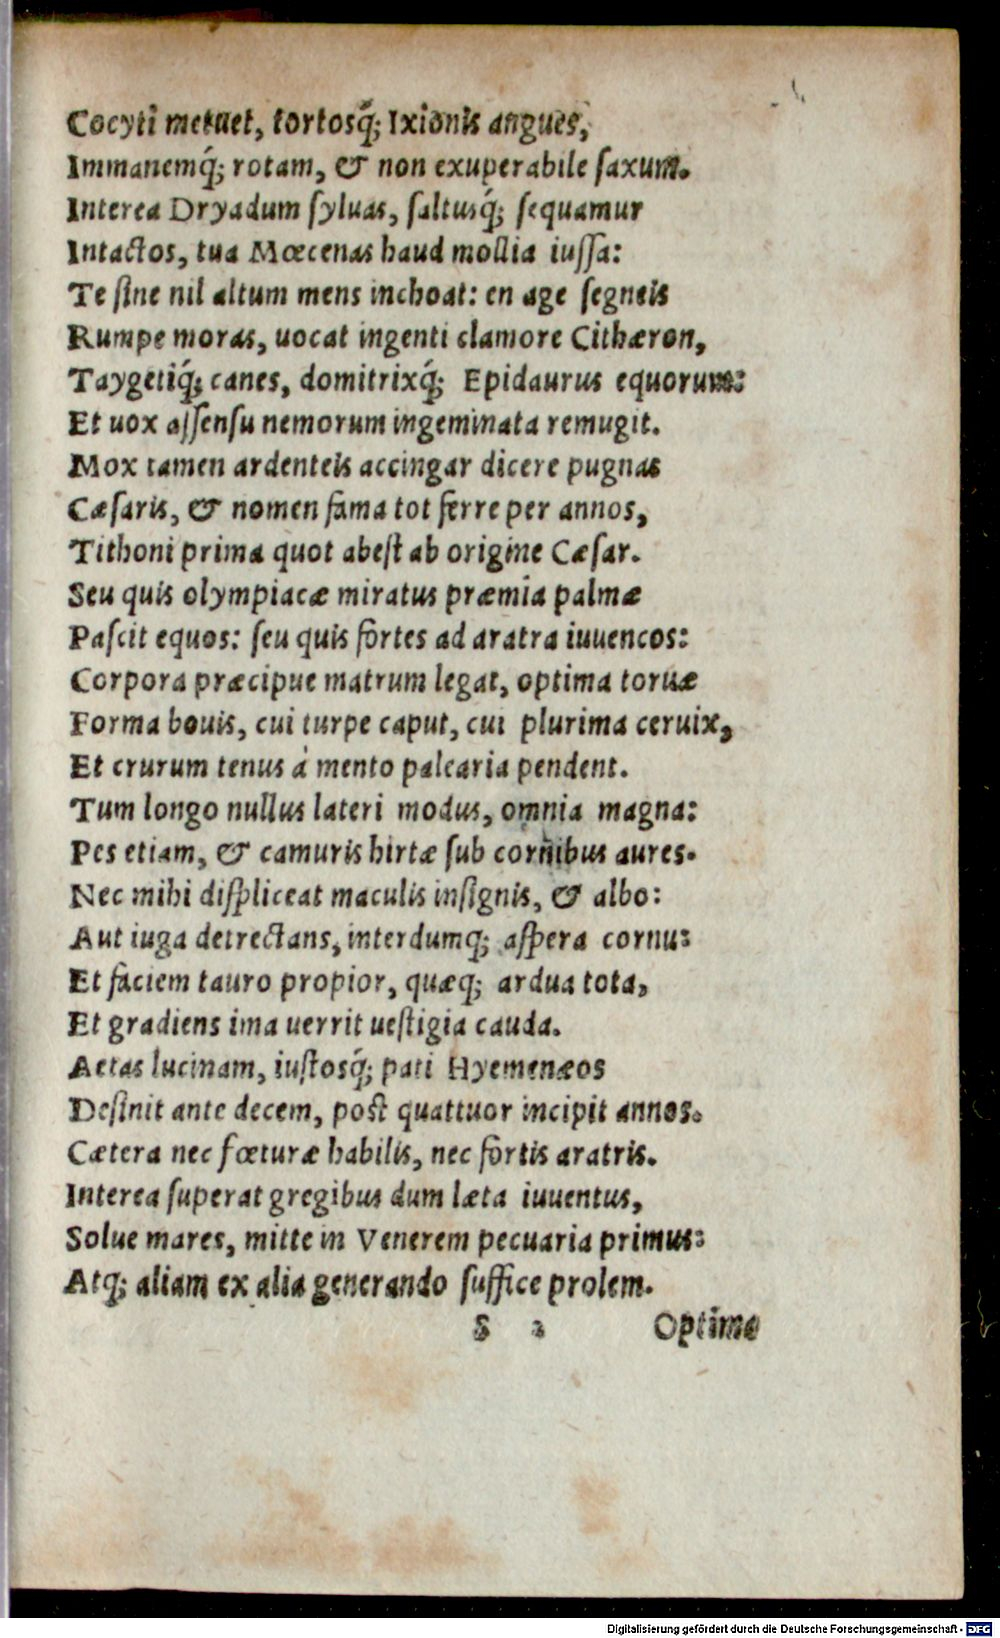 Cocyti metuet, tortosq́; Ixionis angues,
Immanemq́; rotam, & non exuperabile ſaxum.
Interea Dryadum ſyluas, ſaltusq́; ſequamur
Intactos, tua Mœcenas haud mollia iuſſa:
Te ſine nil altum mens inchoat: en age ſegneis
Rumpe moras, uocat ingenti clamore Cithæron,
Taygetiq́; canes, domitrixq́; Epidaurus equorum:
Et uox aſſenſu nemorum ingeminata remugit.
Mox tamen ardenteis accingar dicere pugnas
Cæſaris, & nomen fama tot ferre per annos,
Tithoni prima quot abeſt ab origine Cæſar.
Seu quis olympiacæ miratus præmia palmæ
Paſcit equos: ſeu quis fortes ad aratra iuuencos:
Corpora præcipue matrum legat, optima toruæ
Forma bouis, cui turpe caput, cui plurima ceruix,
Et crurum tenus à mento palearia pendent.
Tum longo nullus lateri modus, omnia magna:
Pes etiam, & camuris hirtæ ſub cornibus aures.
Nec mihi diſpliceat maculis inſignis, & albo:
Aut iuga detrectans, interdumq; aſpera cornu:
Et faciem tauro propior, quæq; ardua tota,
Et gradiens ima uerrit ueſtigia cauda.
Aetas lucinam, iuſtosq́; pati Hyemenæos
Deſinit ante decem, poſt quattuor incipit annos.
Cætera nec fœturæ habilis, nec fortis aratris.
Interea ſuperat gregibus dum læta iuuentus,
Solue mares, mitte in Venerem pecuaria primus:
Atq; aliam ex alia generando ſuffice prolem.
S 2 Optima
Digitalisierung gefördert durch die Deutsche Forschungsgemeinschaft - DFG